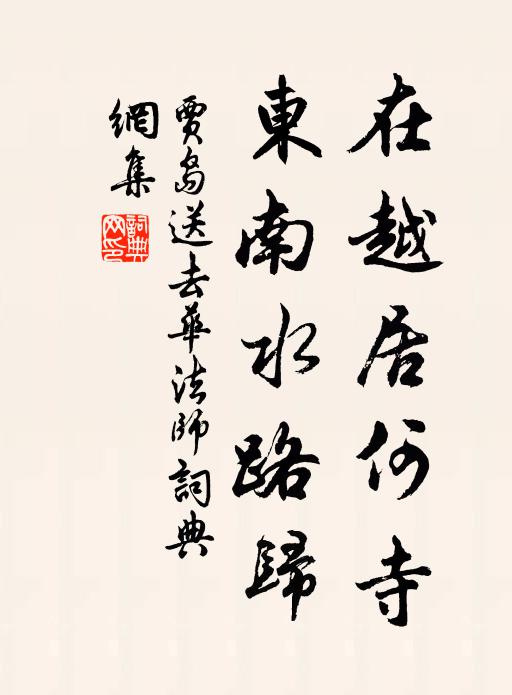 在越居何寺
東南水路歸
賈島送去華法師詞典
網集
詞典
网印